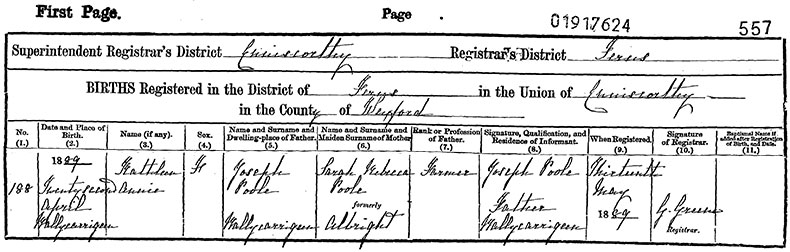 First Page.
Page
01917624
557
Superintendent Registrar's District Enniscorthy Registrar's District Ferns
BIRTHS Registered in the District of Ferns in the Union of Enniscorthy
in the County of Wexford
No. (1.)
Date and Place of Birth. (2.)
Name (if any). (3.)
Sex. (4.)
Name and Surname and Dwelling-place of Father. (5.)
Name and Surname and Maiden Surname of Mother (6.)
Rank or Profession of Father. (7.)
Signature, Qualification, and Residence of Informant. (8.)
When Registered. (9.)
Signature of Registrar. (10.)
Baptismal Name if added after Registration of Birth, and Date. (11.)
188
1889
Twenty second
April
Ballycarrigeen
Kathleen
Annie
F
Joseph
Poole
Ballycarrigeen
Sarah Rebecca
Poole
formerly
Albright
Farmer
Joseph Poole
Father
Ballycarrigeen
Thirteenth
May
1889
G. Green
Registrar.